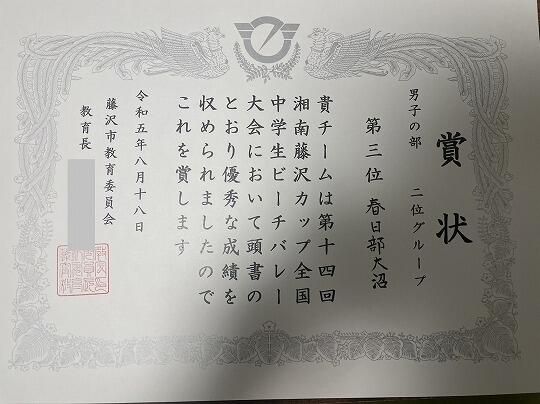 賞状
男子の部　二位グループ
第三位　春日部大沼
貴チームは第十四回
湘南藤沢カップ全国
中学生ビーチバレー
大会において頭書の
とおり優秀な成績を
収められましたので
これを賞します
令和五年八月十八日
藤沢市教育委員会
教育長